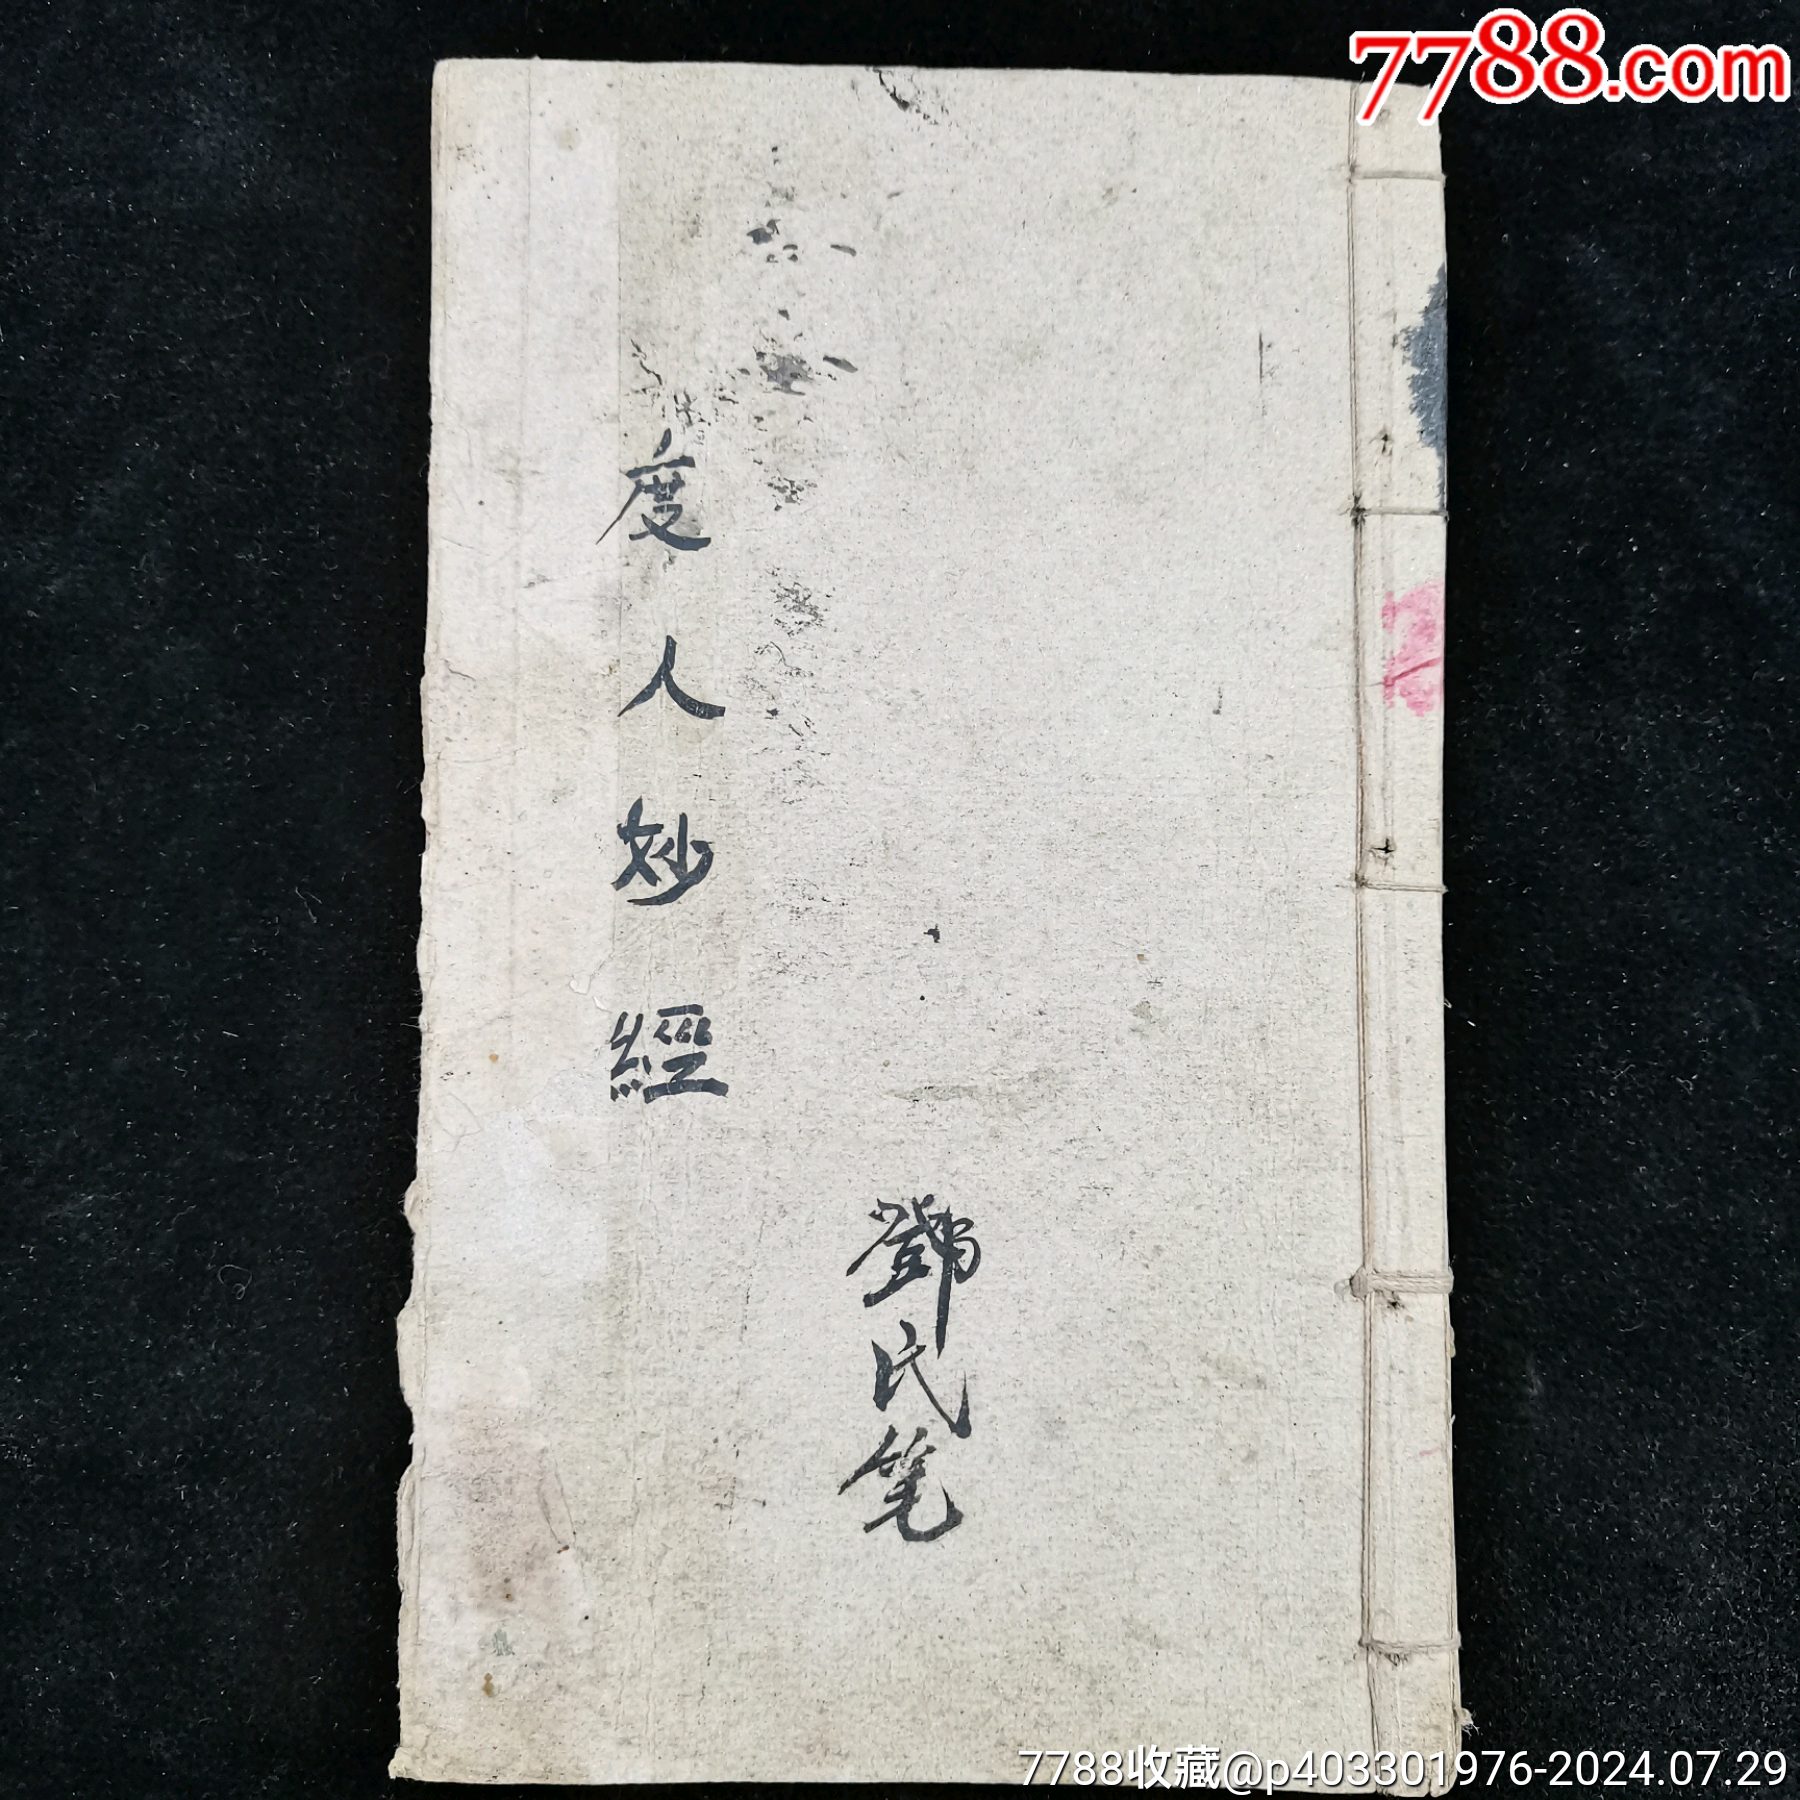 7788.com
度人妙經
鄧氏笔
7788收藏@p403301976-2024.07.29